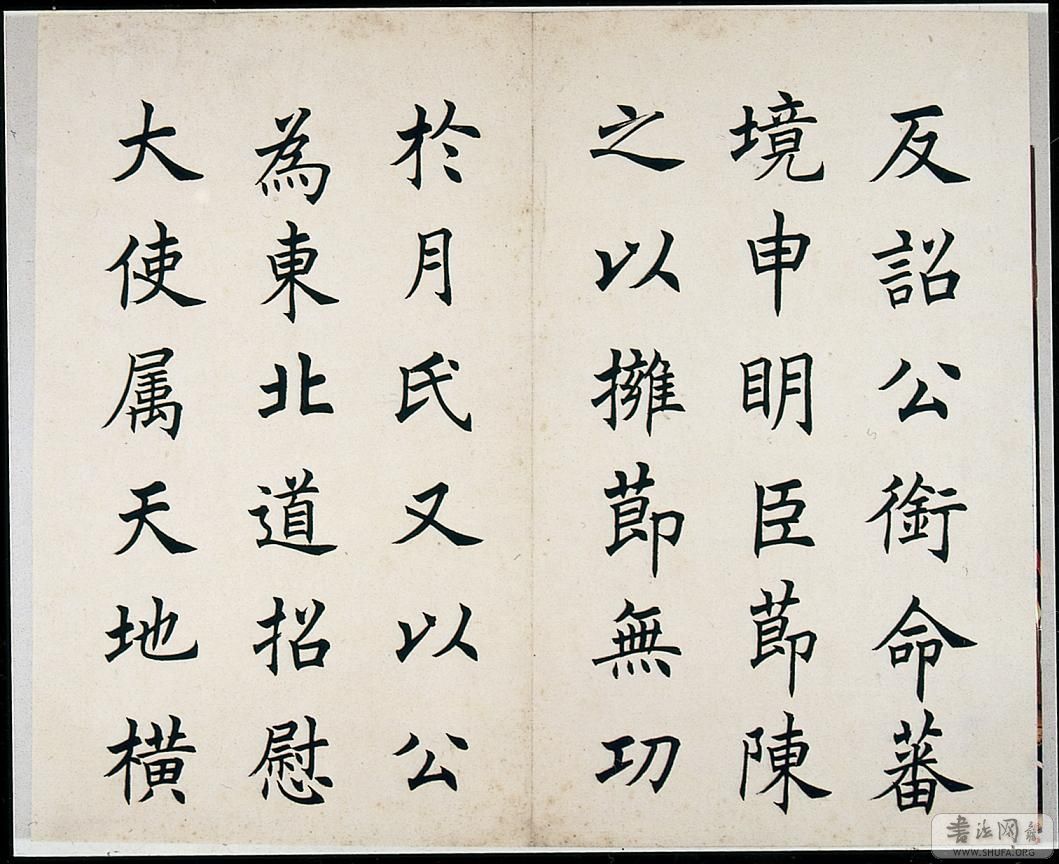 反詔公銜命蕃
境申眀臣莭陳
之以擁莭無功
於月氏又以公
為東北道招慰
大使属天地橫
書法网
WWW.SHUFA.ORG